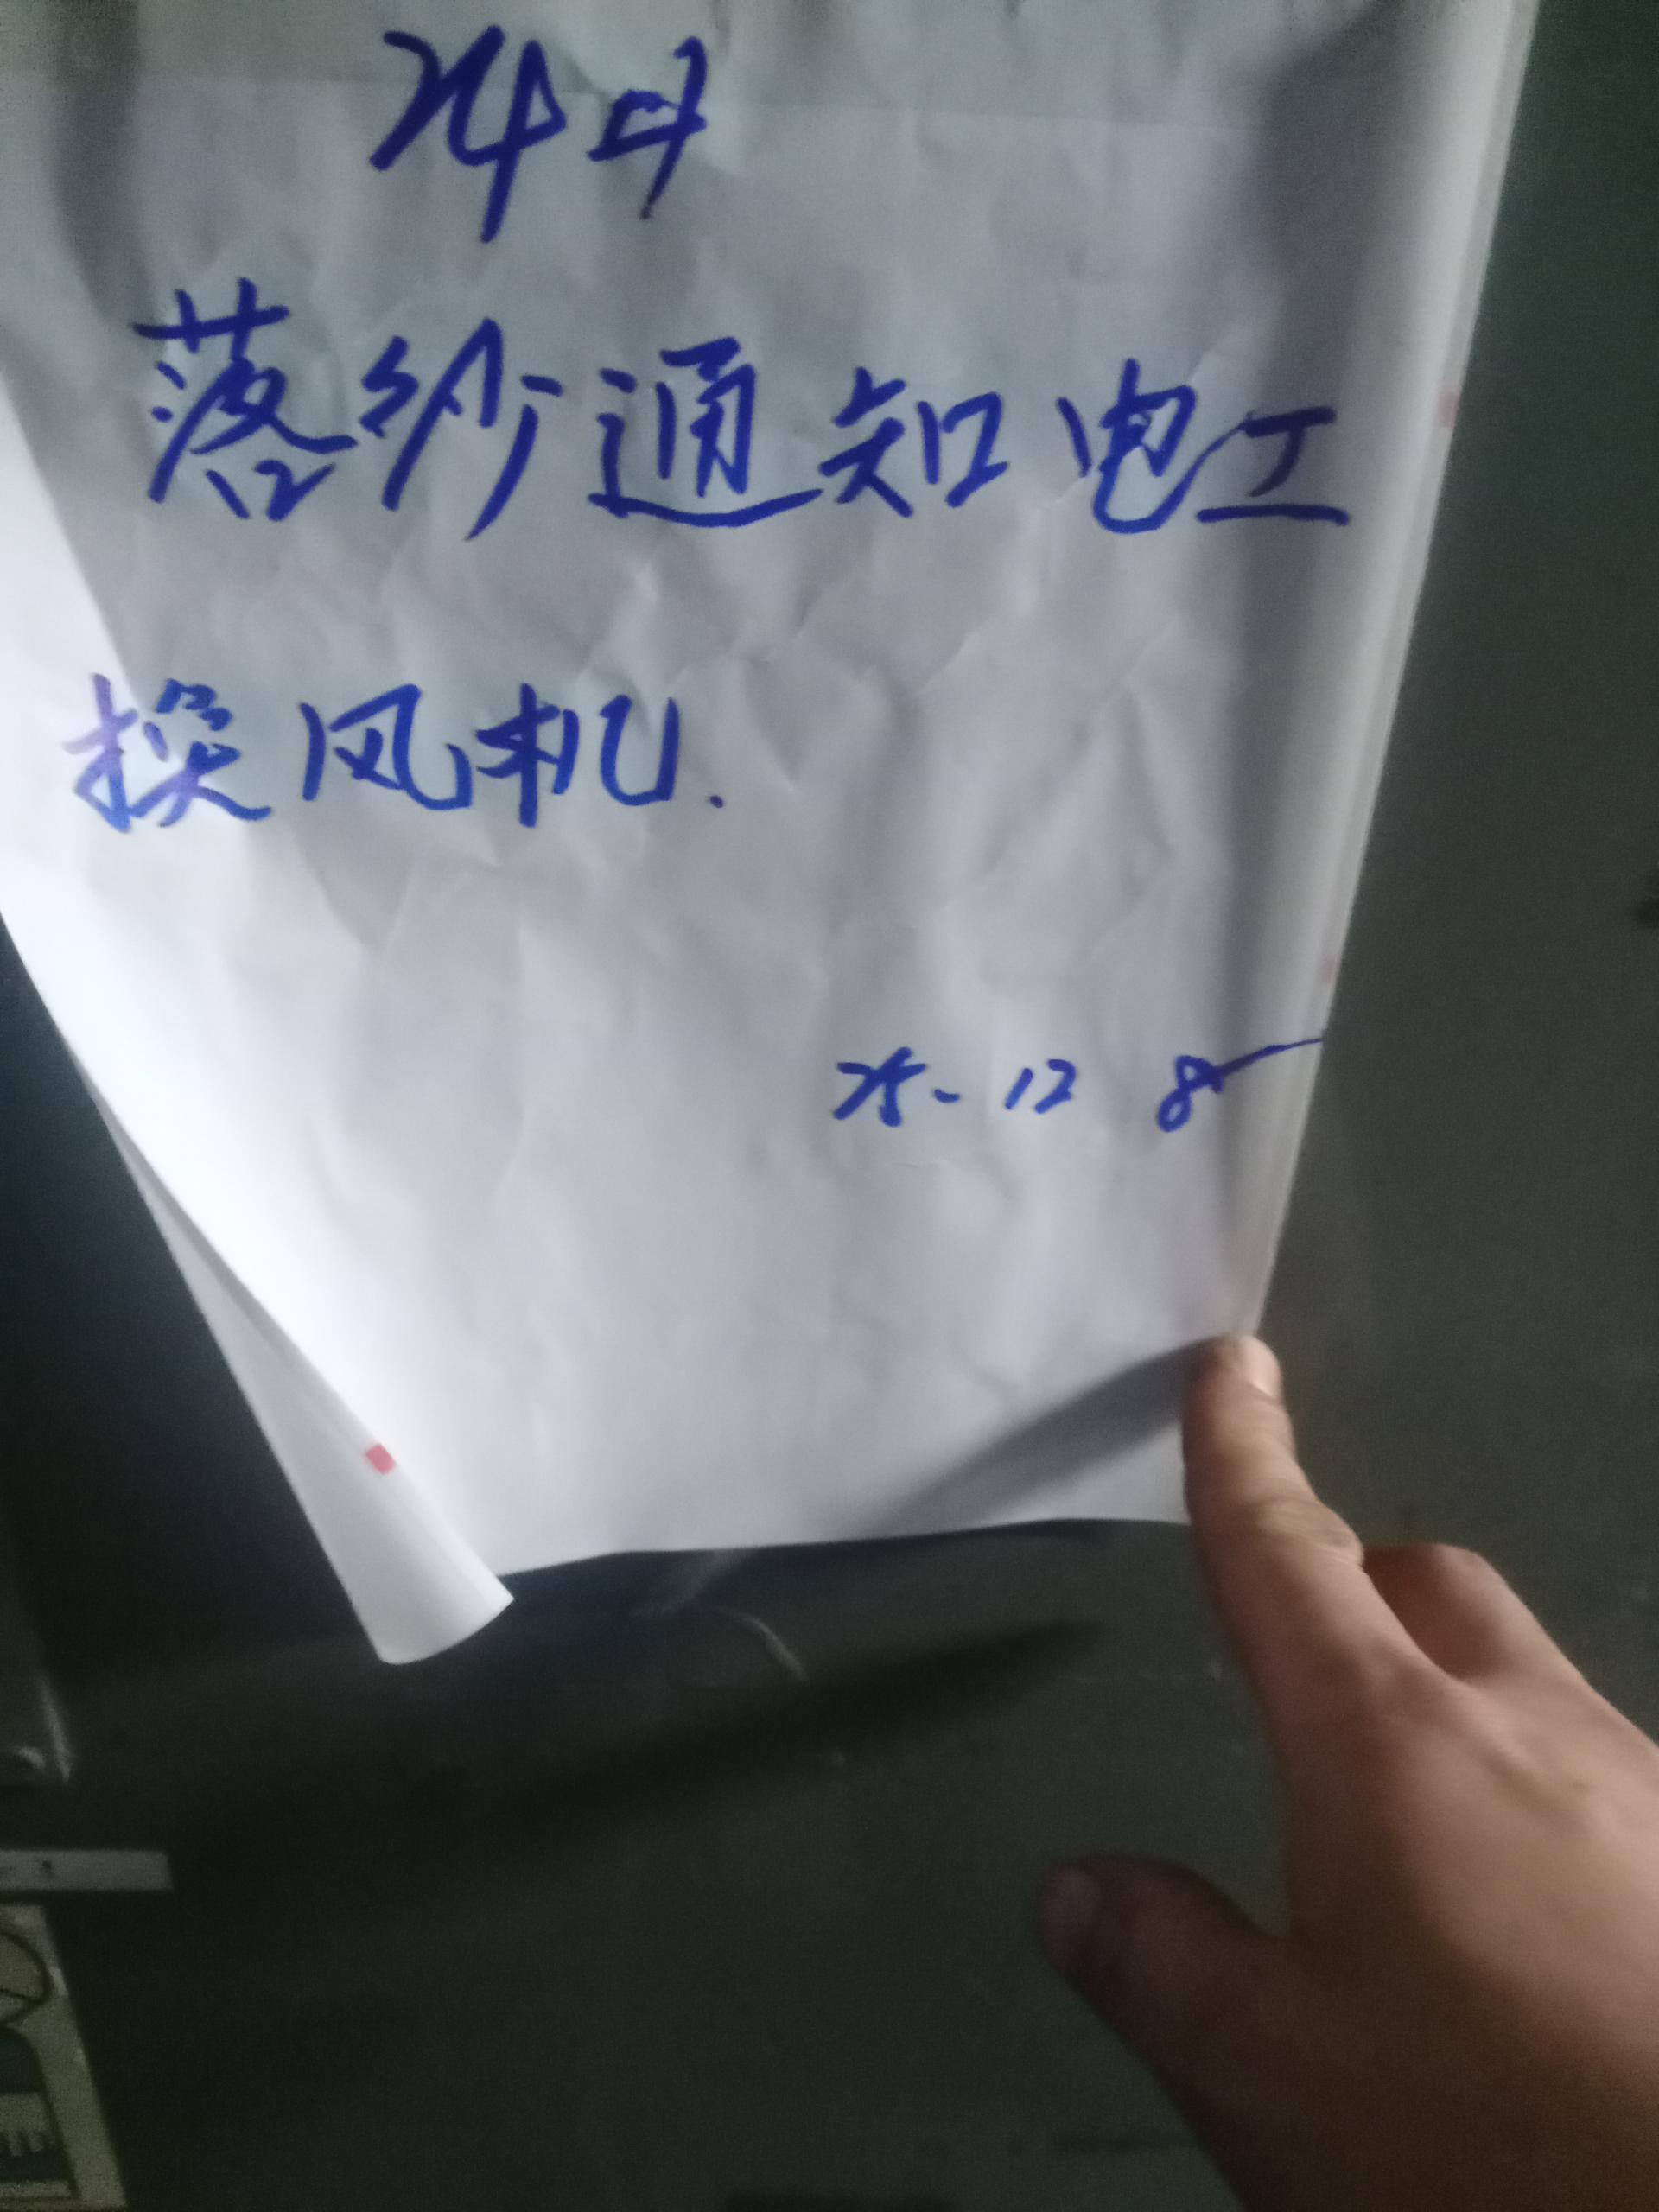 落纱通知电工
换风机.
25-12 8